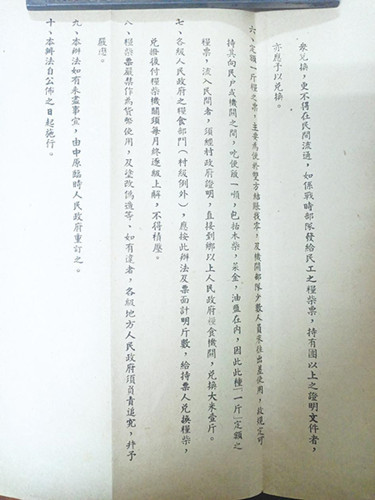 衆兌換，更不得在民間流通，如係戰時部隊發給民工之糧柴票，持有團以上之證明文件者，
亦應予以兌換。
六、定額一斤糧之票，主要為便於雙方結賬找零，及機關部隊少數人員來往出差使用，故規定可
持其向民戶或機關之間，吃便飯一頓，包括木柴，菜金，油鹽在內，因此此種「一斤」定額之
糧票，流入民間者，須經村政府證明，直接到鄉以上人民政府糧食機關，兌換大米壹斤。
七、各級人民政府之糧食部門（村級例外），應按此辦法及票面計明斤數，給持票人兌換糧柴，
兌換後付糧柴機關須每月終逐級上解，不得積壓。
八、糧柴票嚴禁作為貨幣使用，及塗改偽造等，如有違者，各級地方人民政府須負責追究，并予
嚴懲。
九、本辦法如有未盡事宜，由中原臨時人民政府重訂之。
十、本辦法自公佈之日起施行。